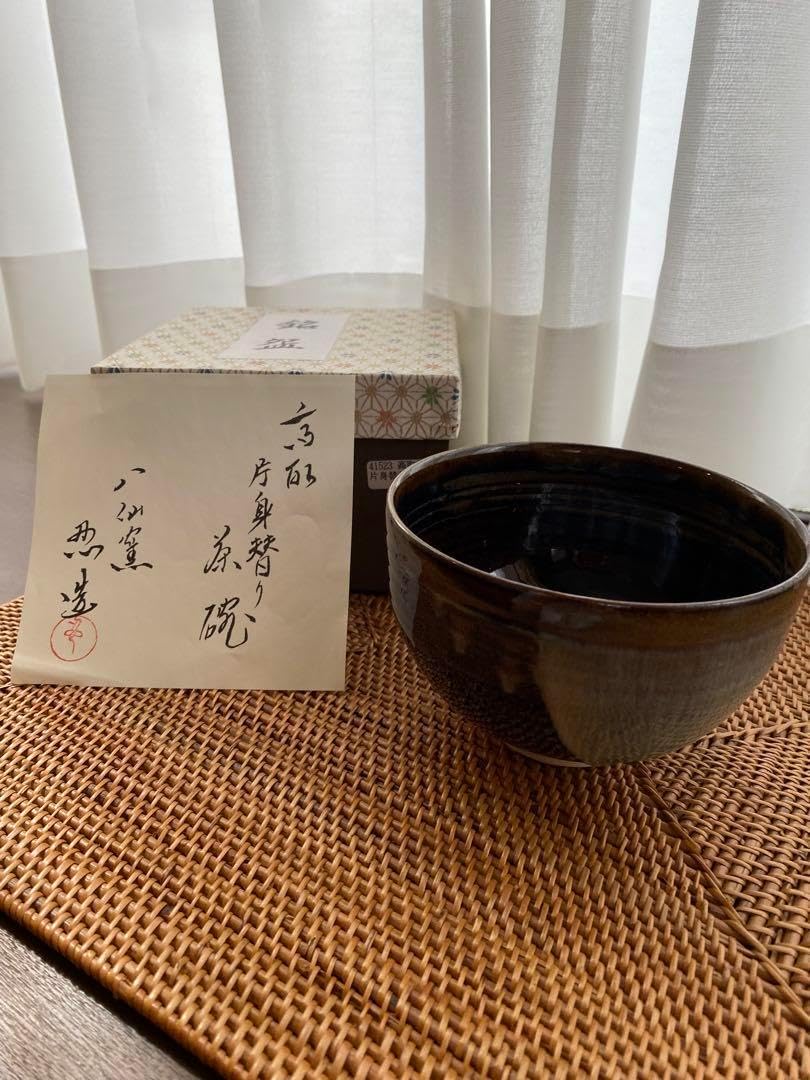 高取
片身替り
茶碗
八仙窯
忍造
銘盌
41523 高取
片身替